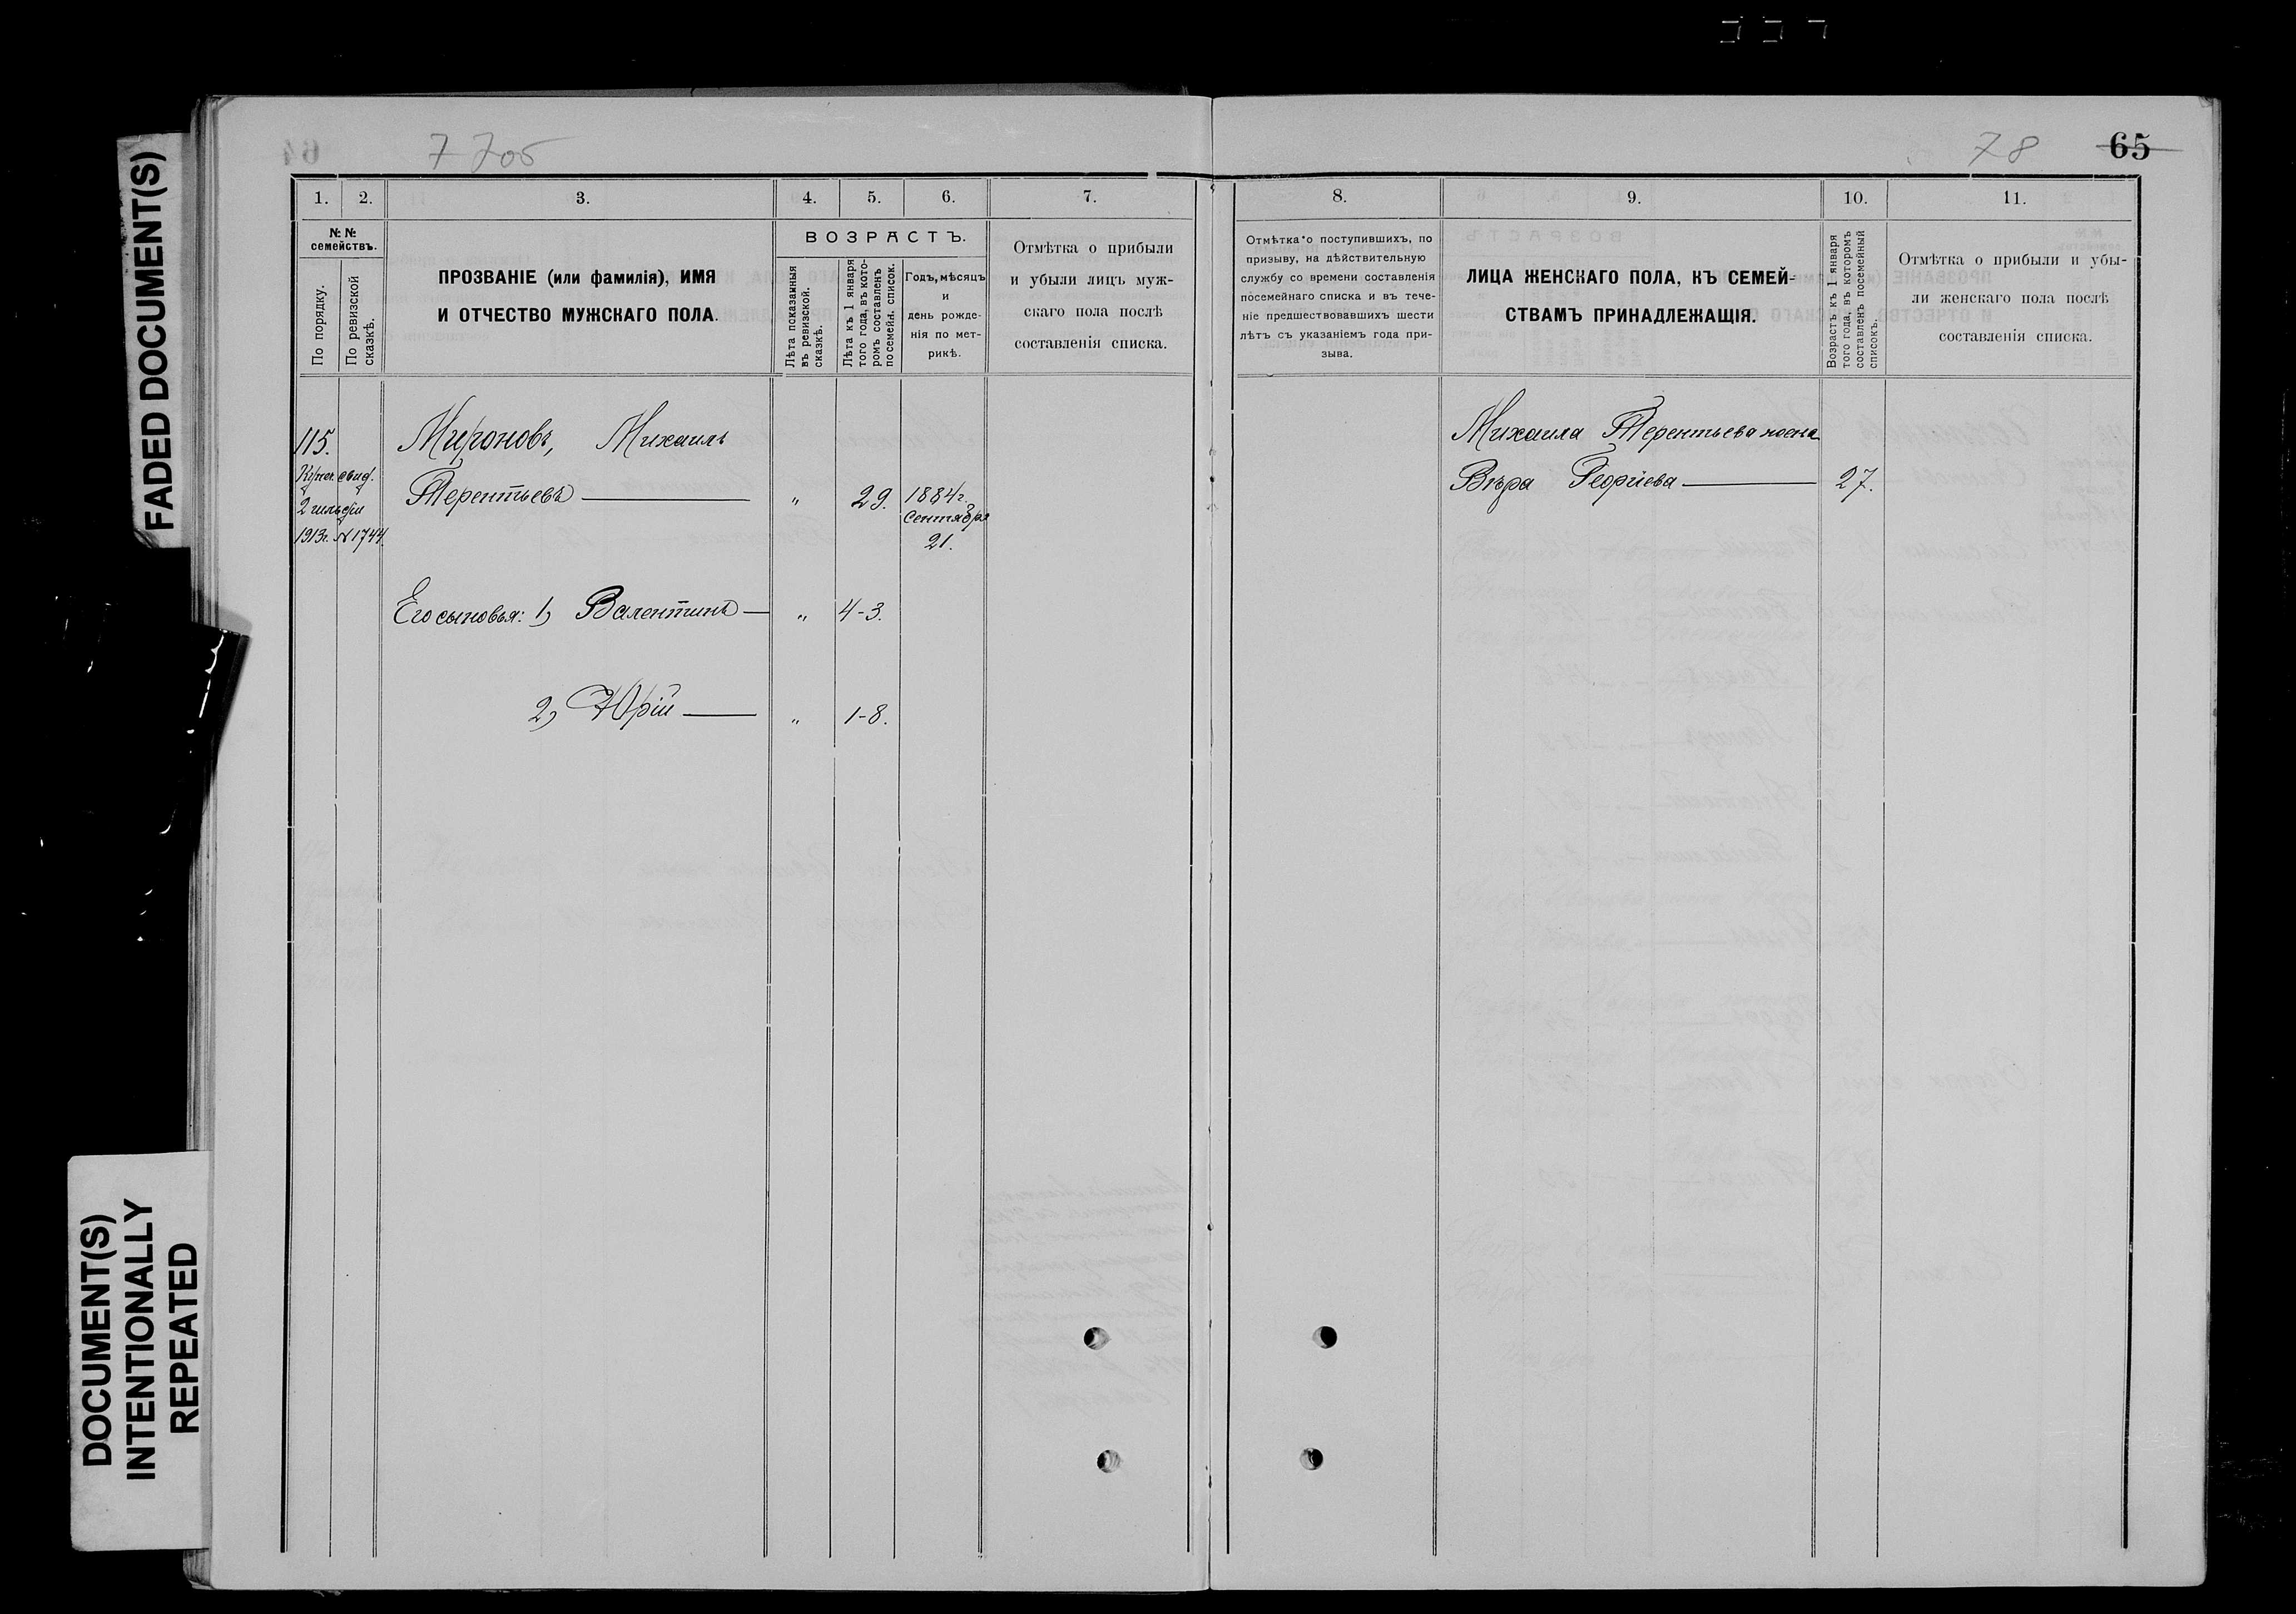 FADED DOCUMENT(S)
DOCUMENT(S)
INTENTIONALLY
REPEATED
7705
78
65
1.
2.
3.
4.
5.
6.
7.
№ №
семействъ.
По порядку.
По ревизской
сказкѣ.
ПРОЗВАНІЕ (или фамилія), ИМЯ
И ОТЧЕСТВО МУЖСКАГО ПОЛА.
ВОЗРАСТЪ.
Лѣта показанныя
въ ревизской.
сказкѣ.
Лѣта къ 1 января
того года, въ кото-
ромъ составленъ
посемейн. список.
Годъ, мѣсяцъ
и
день рожде-
нія по мет-
рикѣ.
Отмѣтка о прибыли
и убыли лицъ муж-
скаго пола послѣ
составленія списка.
115.
Купеч. свид.
2 гильдіи
1913г. №1744.
Мироновъ, Михаилъ
Терентьевъ — " 29. 1884г.
Сентября
21.
Его сыновья: 1) Валентинъ — " 4-3.
2) Юрій — " 1-8.
8.
9.
10.
11.
Отмѣтка о поступившихъ, по
призыву, на дѣйствительную
службу со времени составленія
посемейнаго списка и въ тече-
ніе предшествовавшихъ шести
лѣтъ съ указаніемъ года при-
зыва.
ЛИЦА ЖЕНСКАГО ПОЛА, КЪ СЕМЕЙ-
СТВАМЪ ПРИНАДЛЕЖАЩІЯ.
Возрастъ къ 1 января
того года, въ которомъ
составленъ посемейный
списокъ.
Отмѣтка о прибыли и убы-
ли женскаго пола послѣ
составленія списка.
Михаила Терентьева жена
Вѣра Георгіева — 27.